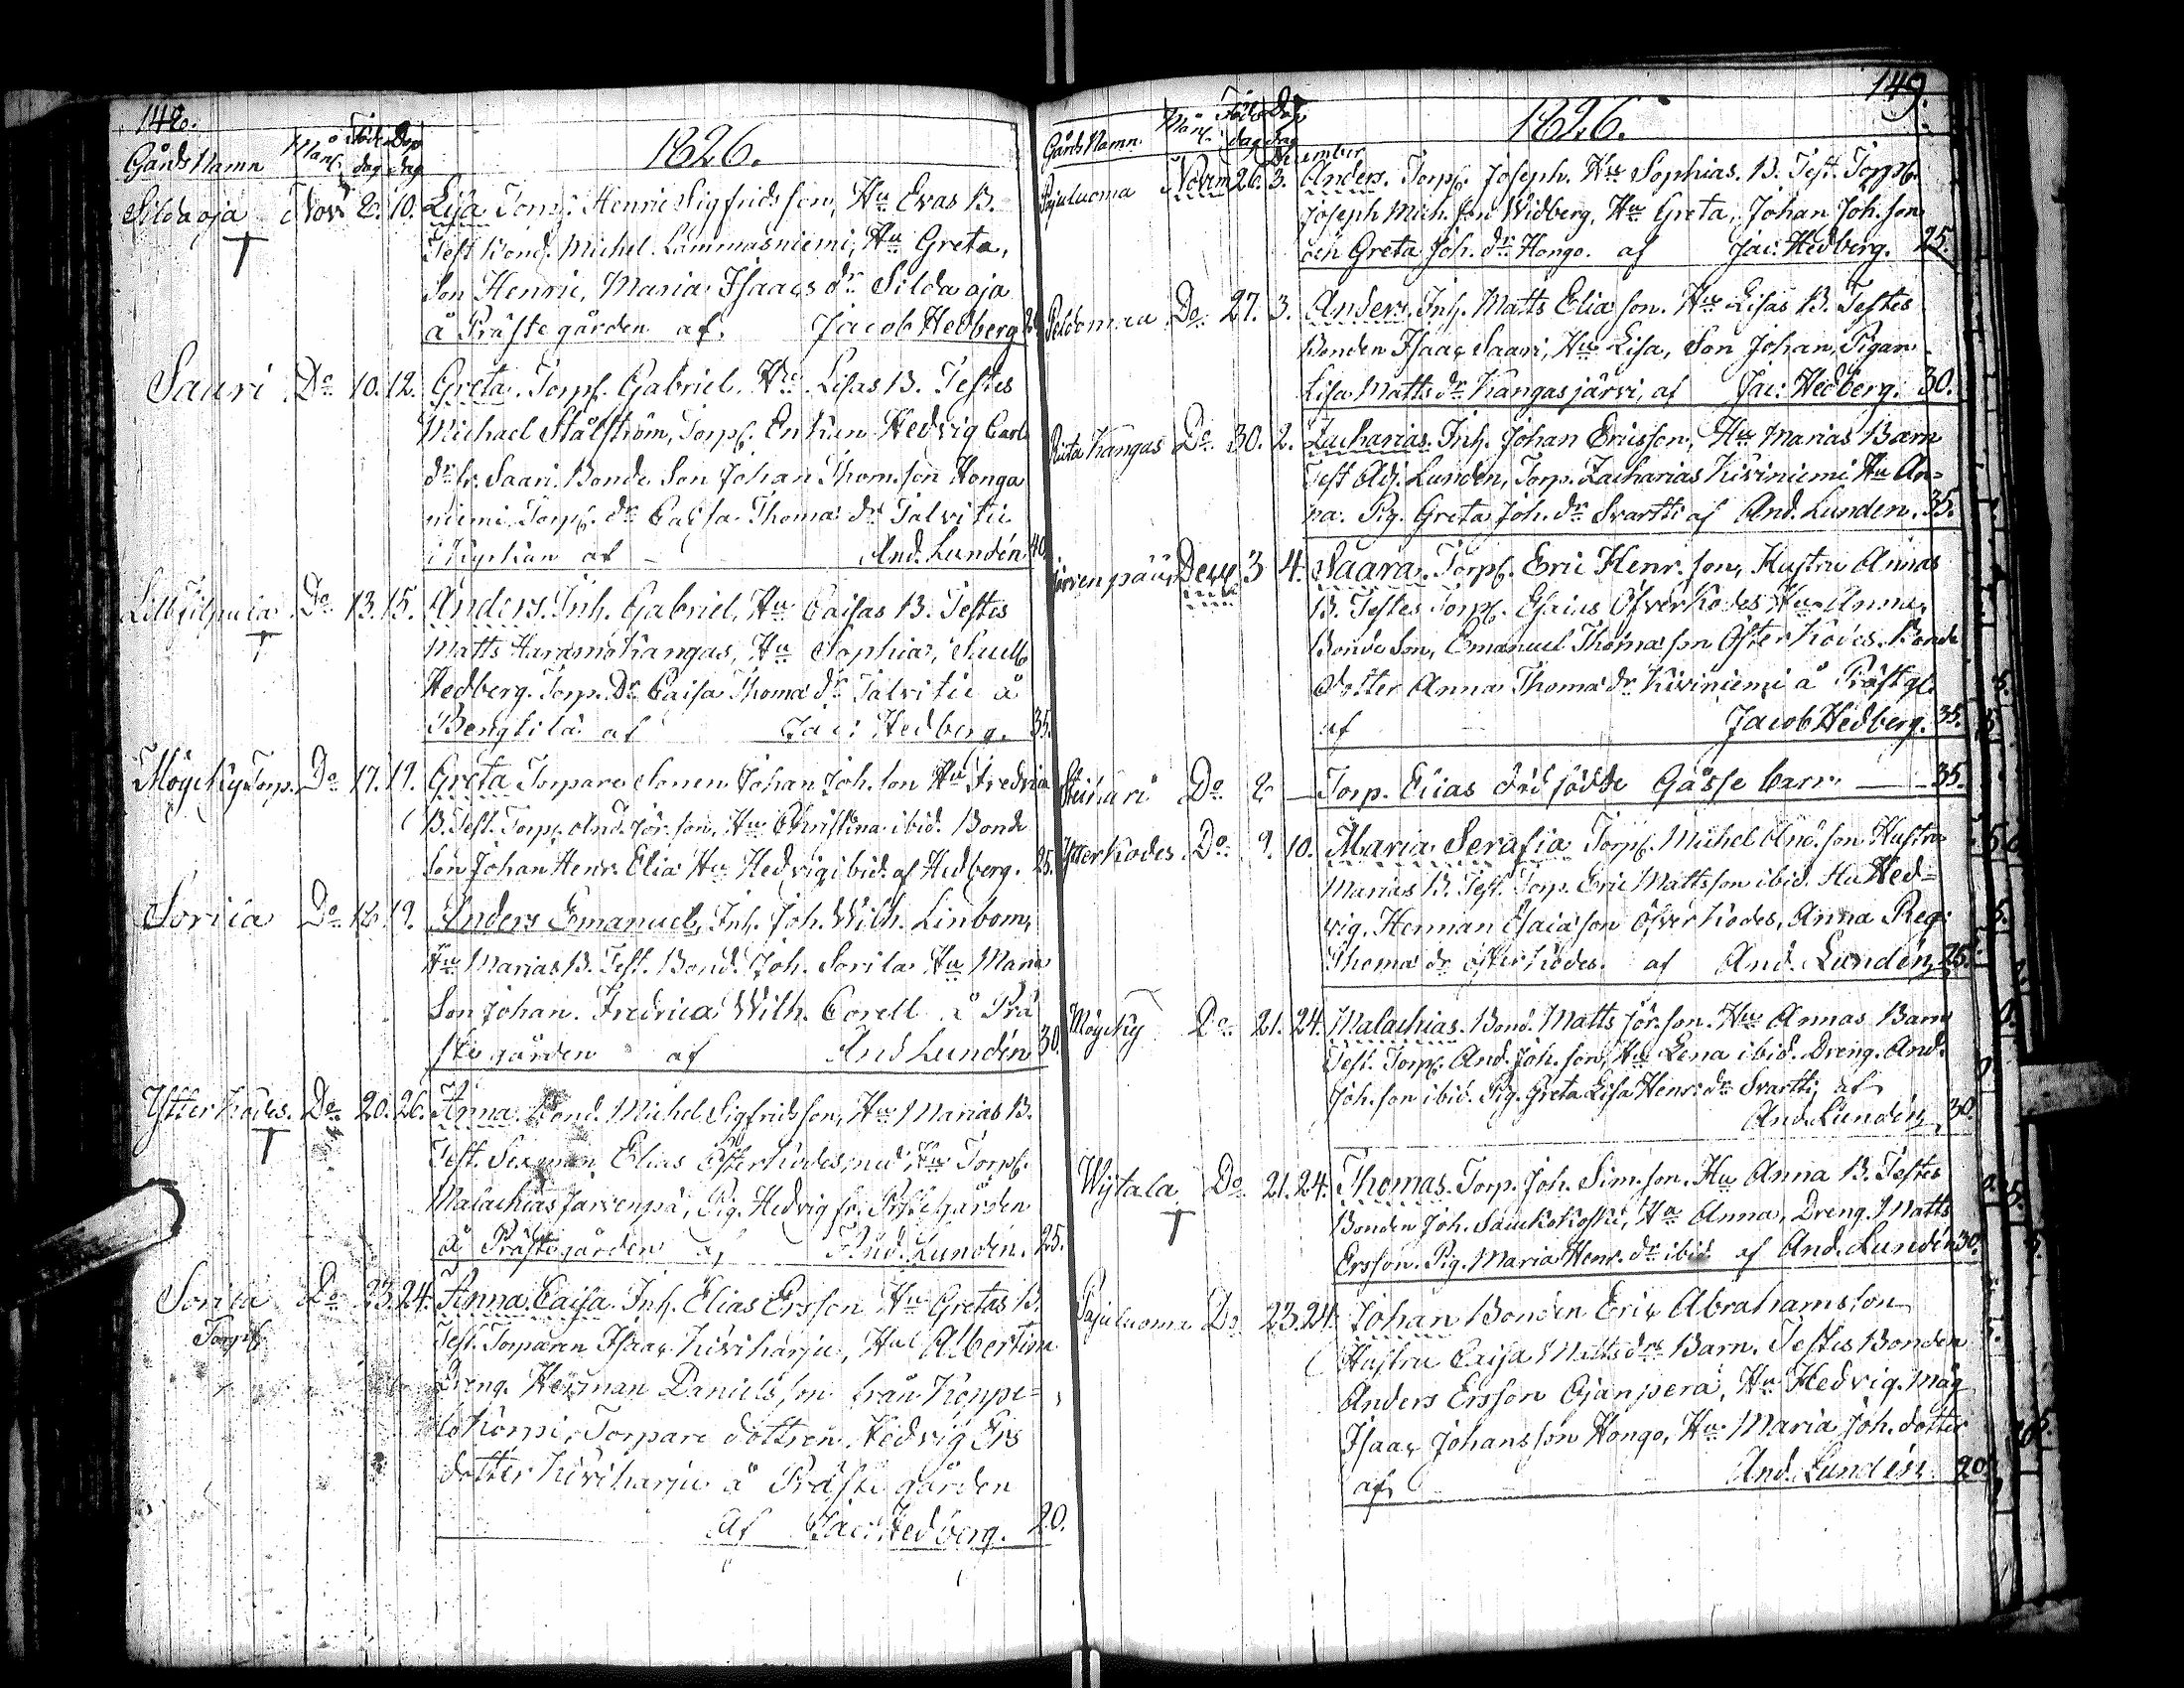 148.
Gårds Namn Mån. Föde dag Dop dag 1826.
Silda oja Nov. 8. 10. Lisa Torp. Henric Sigfrids son, Hu Evas B.
Test. Bond. Michel Lammasniemi, Hu Greta,
Son Henric, Maria Isaacs dr Silda oja
å Präste gården af. Jacob Hedberg
Sauri Do 10. 12. Greta. Torp. Gabriel. Hu Lisas B. Testes
Michael Stålström, Torp. Enkan Hedvig Carls
dr fr. Saari. Bonde Son Johan Thom. son Honga
niemi Torp. dr Caisa Thoma dr Talvitie
i Kyrkan af And. Lundén 40.
Do 13. 15. Anders. Inh. Gabriel, Hu Caisas B. Testes
Matts Haramokangas, Hu Sophia,
Hedberg. Torp. Dr Caisa Thoma dr Talvitie å
Bengtila af Jac: Hedberg. 35.
Möyeky Torp. Do 17. 19. Greta Torpare Sonen Johan Joh. son Hu Fredrica
B. Test. Torp. And. Jör. son, Hu Christina ibid. Bonde
Son Johan Henr. Elia Hu Hedvig ibid. af Hedberg. 25.
Sorila Do 18. 19. Anders Emanuel, Inh. Joh. Wilh. Linbom,
Hu Marias B. Test. Bond. Joh. Sorila Hu Maria
Son Johan. Fredrica Wilh. Corell å Prä
ste gården af And Lundén 30.
Ytterkodes. Do 20. 26. Anna Bond. Michel Sigfridsson, Hu Marias B.
Test. Sexman Elias Öfterkodes med Hu Torp.
Malachias Jarvenpä, Pig. Hedvig fr. Präste gården
å Präste gården af And. Lundén. 25.
Sorila Torp. Do 23. 24. Anna Caisa. Inh. Elias Ersson Hu Gretas B.
Test. Torparen Isaac Kiviharju, Hu Albertina
Dreng. Herman Daniels son från Könpe-
lökorpi, Torpare dottren Hedvig Ers
dotter Kiviharju å Präste gården
af Jac: Hedberg. 20.
149.
Gårds Namn. Mån. Föde dag Dop dag 1826.
December
Pajuluoma Novem 26. 3. Anders. Torp. Joseph. Hus Sophias. B. Test. Torp.
Joseph Mich. son Widberg, Hu Greta, Johan Joh. son
och Greta Joh. dr Hongo. af Jac: Hedberg. 25.
Peldomaa Do 27. 3. Anders. Inh. Matts Elia son. Hus Lisas B. Testes
Bonden Isaac Saari, Hu Lisa, Son Johan, Pigan
Lisa Matts dr Kangasjärvi, af Jac: Hedberg. 30.
Kangas Do 30. 2. Zacharias. Inh. Johan Ericsson, Hus Marias Barn
Test Adj. Lunden, Torp. Zacharias Kiviniemi Hu An-
na. Pig. Greta Joh. dr Svartti af And. Lunden. 35.
Järvenpää Dec. 3 4. Saara. Torp. Eric Henr. son, Hustru Annas
B. Testes Torp. Esaias Öfverkodes Hu Anna,
Bonde Son, Emanuel Thoma son Öfterkodes. Bonde
dotter Anna Thoma dr Kiviniemi å Präst g.
af Jacob Hedberg. 35.
Steikari Do 8 — Torp. Elias död födde Gåsse barn — 35.
Ytterkodes Do 9. 10. Maria Serafia Torp. Michel And. son Hustru
Marias B. Test. Torp. Eric Mattsson ibid. Hu Hed-
vig. Herman Esaia son Öfverkodes, Anna Reg:
Thoma dr Öfterkodes. af And. Lundén, 25.
Möyeky Do 21. 24. Malachias. Bond. Matts Jör. son. Hu Annas Barn
Test. Torp. And. Joh. son, Hu Lena ibid. Dreng. And.
Joh. son ibid. Pig. Greta Lisa Henr. dr Svartti, af
And. Lundén, 30.
Wijtala Do 21. 24. Thomas. Torp. Joh. Sim. son. Hu Anna B. Testes
Bonden Joh. Saukokoski, Hu Anna, Dreng. Matts
Ersson. Pig. Maria Henr. dr ibid. af And. Lundén 30.
Pajuluoma Do 23. 24. Johan Bonden Eric Abrahamsson
Hustru Caisa Matts drs Barn. Testes Bonden
Anders Ersson Ojanpera, Hu Hedvig. Måg
Isaac Johansson Hongo, Hu Maria Joh. dotter
af And. Lundén 20.